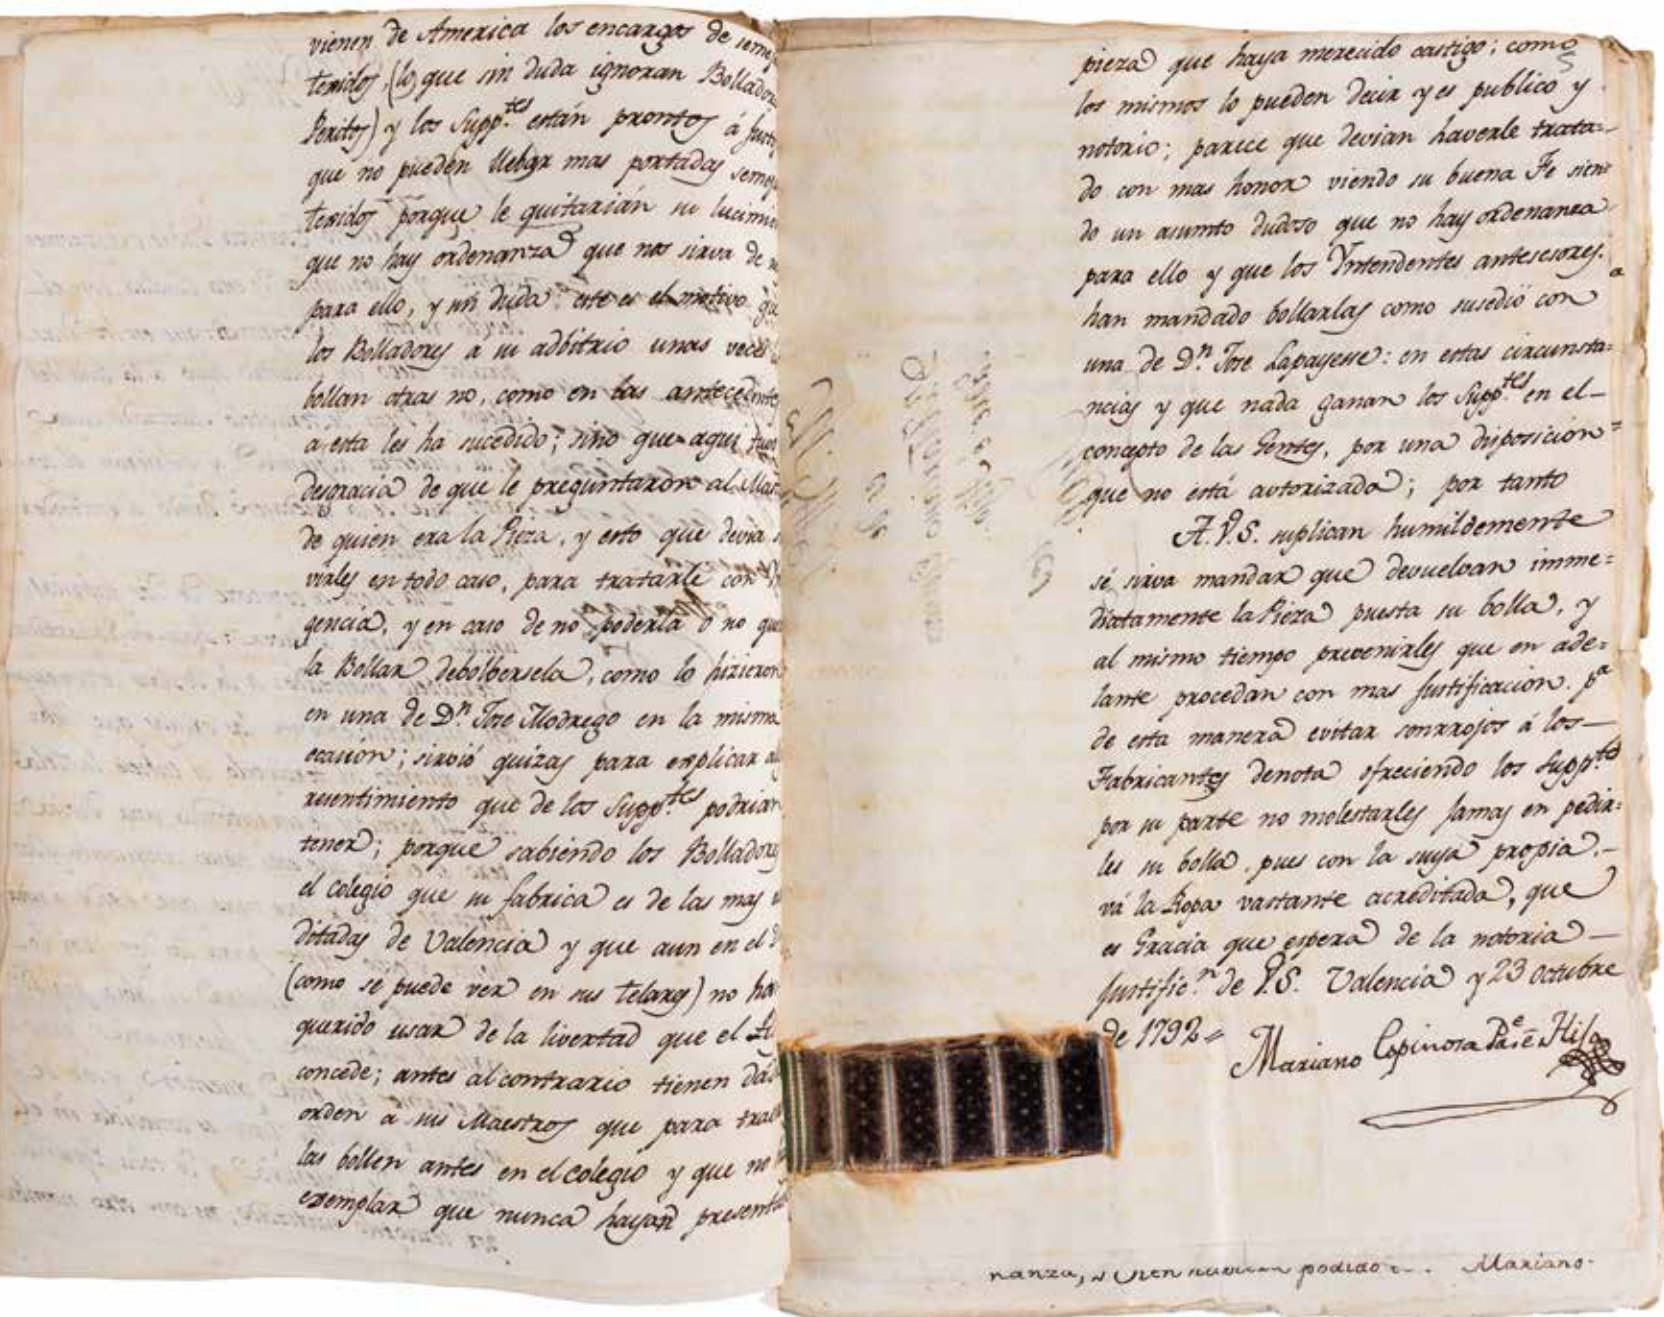 vienen de America los encargos de seme
texidos, (lo que sin duda ignoran Bollador
Peritos) y los Supp.tes están prontos á justi
que no pueden llebar mas portadas seme
texidos porque le quitarián su lucimi
que no hay ordenanza que nos sirva de
para ello, y sin duda este es el motivo qu
los Bolladores á su adbitrio unas veces
bollan otras no, como en las antecedente
a esta les ha sucedido; sino que aqui tuvo
desgracia de que le preguntaron al Maes
de quien era la Pieza, y esto que devia
virles en todo caso, para tratarle con
gencia, y en caso de no poderla o no que
la Bollar debolbersela, como lo hizieron
en una de D.n Jose Modrego en la misma
ocasion; sirvió quizas para explicar
resentimiento que de los Supp.tes podrian
tener; porque sabiendo los Bolladores
el colegio que su fabrica es de las mas
ditadas de Valencia y que aun en el
(como se puede vér en sus telares) no ha
querido usar de la livertad que el
concede; antes al contrario tienen dad
orden a sus Maestros que para tra
las bollen antes en el colegio y que no
exemplar que nunca hayan presenta
pieza que haya merecido castigo; como
los mismos lo pueden decir y es publico y
notorio; parece que devian haverle trata=
do con mas honor viendo su buena Fe sien
do un asumto dudoso que no hay ordenanza
para ello y que los Yntendentes antesesores.
han mandado bollarlas como susedió con
una de D.n Jose Lapayesse: en estas circunsta=
ncias y que nada ganan los Supp.tes en el-
concepto de las Gentes, por una disposicion=
que no está autorizada; por tanto
A.V.S. suplican humildemente
se sirva mandar que devuelvan imme=
diatamente la Pieza puesta su bolla, y
al mismo tiempo prevenirles que en ade=
lante procedan con mas justificacion. pa
de esta manera evitar sonrrojos á los-
Fabricantes denota ofreciendo los Supp.tes
por su parte no molestarles jamas en pedir=
les su bolla, pues con la suya propia.-
vá la Ropa vastante acreditada, que
es Gracia que espera de la notoria-
justific.n de V.S. Valencia y 23 octubre
de 1792=
Mariano Espinosa
nanza, podido Mariano.